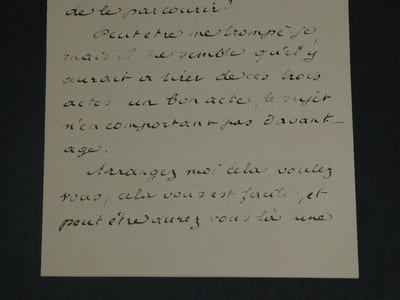 de le parcourir!
Peut etre me trompè-je,
mais il me semble qu'il y
aurait a tirer de ces trois
actes un bon acte, le sujet
n'en comportant pas d'avant-
age.
Arrangez moi cela, voulez
vous, cela vous est facile, et
peut être aurez vous là une